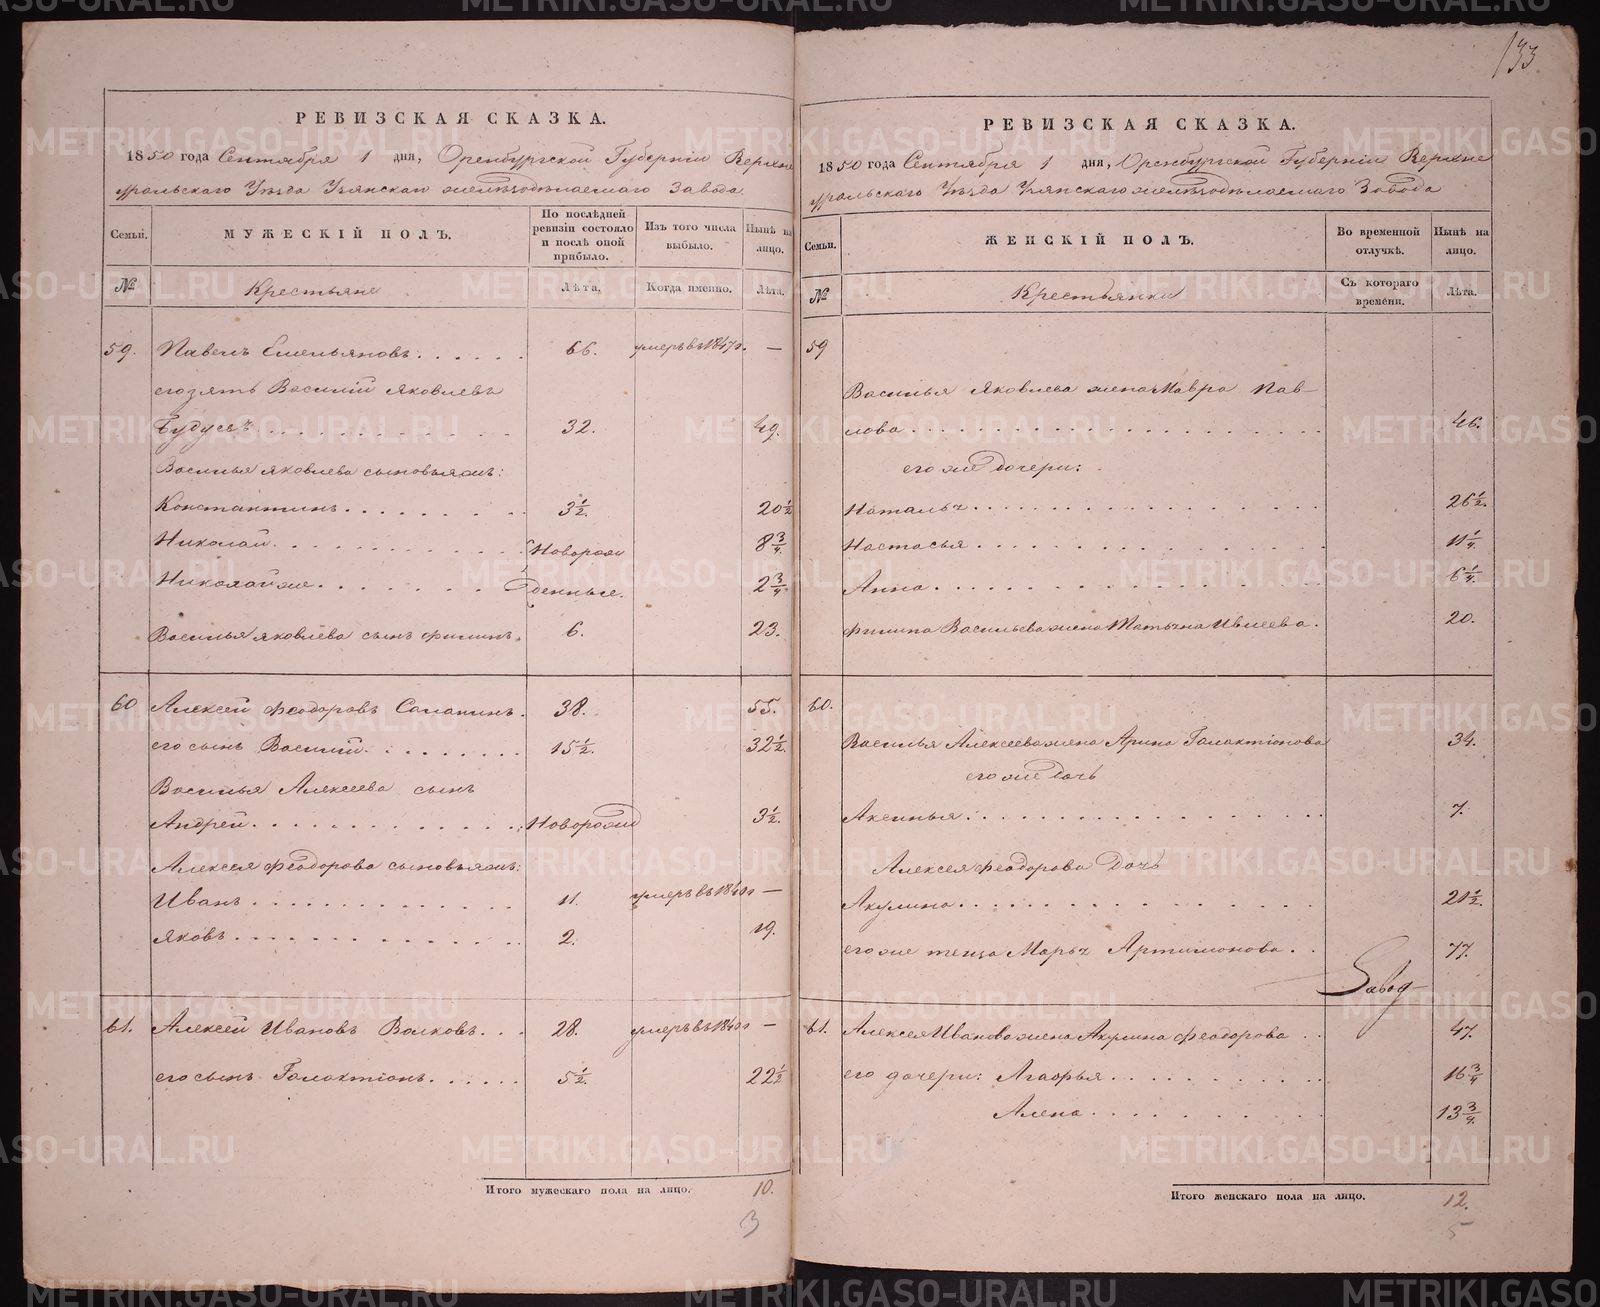 РЕВИЗСКАЯ СКАЗКА.
1850 года Сентября 1 дня, Оренбургской Губерніи Верхне
уральскаго Уѣзда Узянскаго желѣзодѣлаемаго Завода
Семьи.
МУЖЕСКІЙ ПОЛЪ.
По послѣдней ревизіи состояло и послѣ оной прибыло.
Изъ того числа выбыло.
Нынѣ на лицо.
№
Крестьяне
Лѣта.
Когда именно.
Лѣта.
59. Павелъ Емельяновъ 66. умеръ въ 1847 г. —
его зять Василій Яковлевъ
32. 49.
Василья Яковлева сыновья:
Константинъ 3½. 20½
Николай Новорож 8¾.
Николай же денные. 2¾.
Василья Яковлева сынъ Филипъ. 6. 23.
60 Алексей Феодоровъ 38. 55.
его сынъ Василий 15½. 32½.
Василья Алексеева сынъ
Андрей Новорожд 3½.
Алексея Феодорова сыновья:
Иванъ 11. умеръ въ 1840 г —
Яковъ 2. 19.
61. Алексей Ивановъ Волковъ 28. умеръ въ 1840 г —
его сынъ Галактіонъ 5½. 22½
Итого мужескаго пола на лицо. 10.
3
133
РЕВИЗСКАЯ СКАЗКА.
1850 года Сентября 1 дня, Оренбургской Губерніи Верхне
уральскаго Уѣзда Узянскаго желѣзодѣлаемаго Завода
Семьи.
ЖЕНСКІЙ ПОЛЪ.
Во временной отлучкѣ.
Нынѣ на лицо.
№
Крестьянки
Съ котораго времени.
Лѣта.
59
Василья Яковлева жена Мавра Пав-
лова 46.
его же дочери:
Наталья 26½.
Настасья 11¼.
Анна 6¼.
Филипа Васильева жена Татьяна 20.
60.
Василья Алексеева жена Арина Галактіонова 34.
его же дочь
Аксинья 7.
Алексея Феодорова дочь
Акулина 21½.
его же теща Марья Артамонова 77.
Завод
61. Алексея Иванова жена Акулина Феодорова 47.
его дочери: Агафья 16¾
Алена 13¾.
Итого женскаго пола на лицо. 12.
5
METRIKI.GASO-URAL.RU